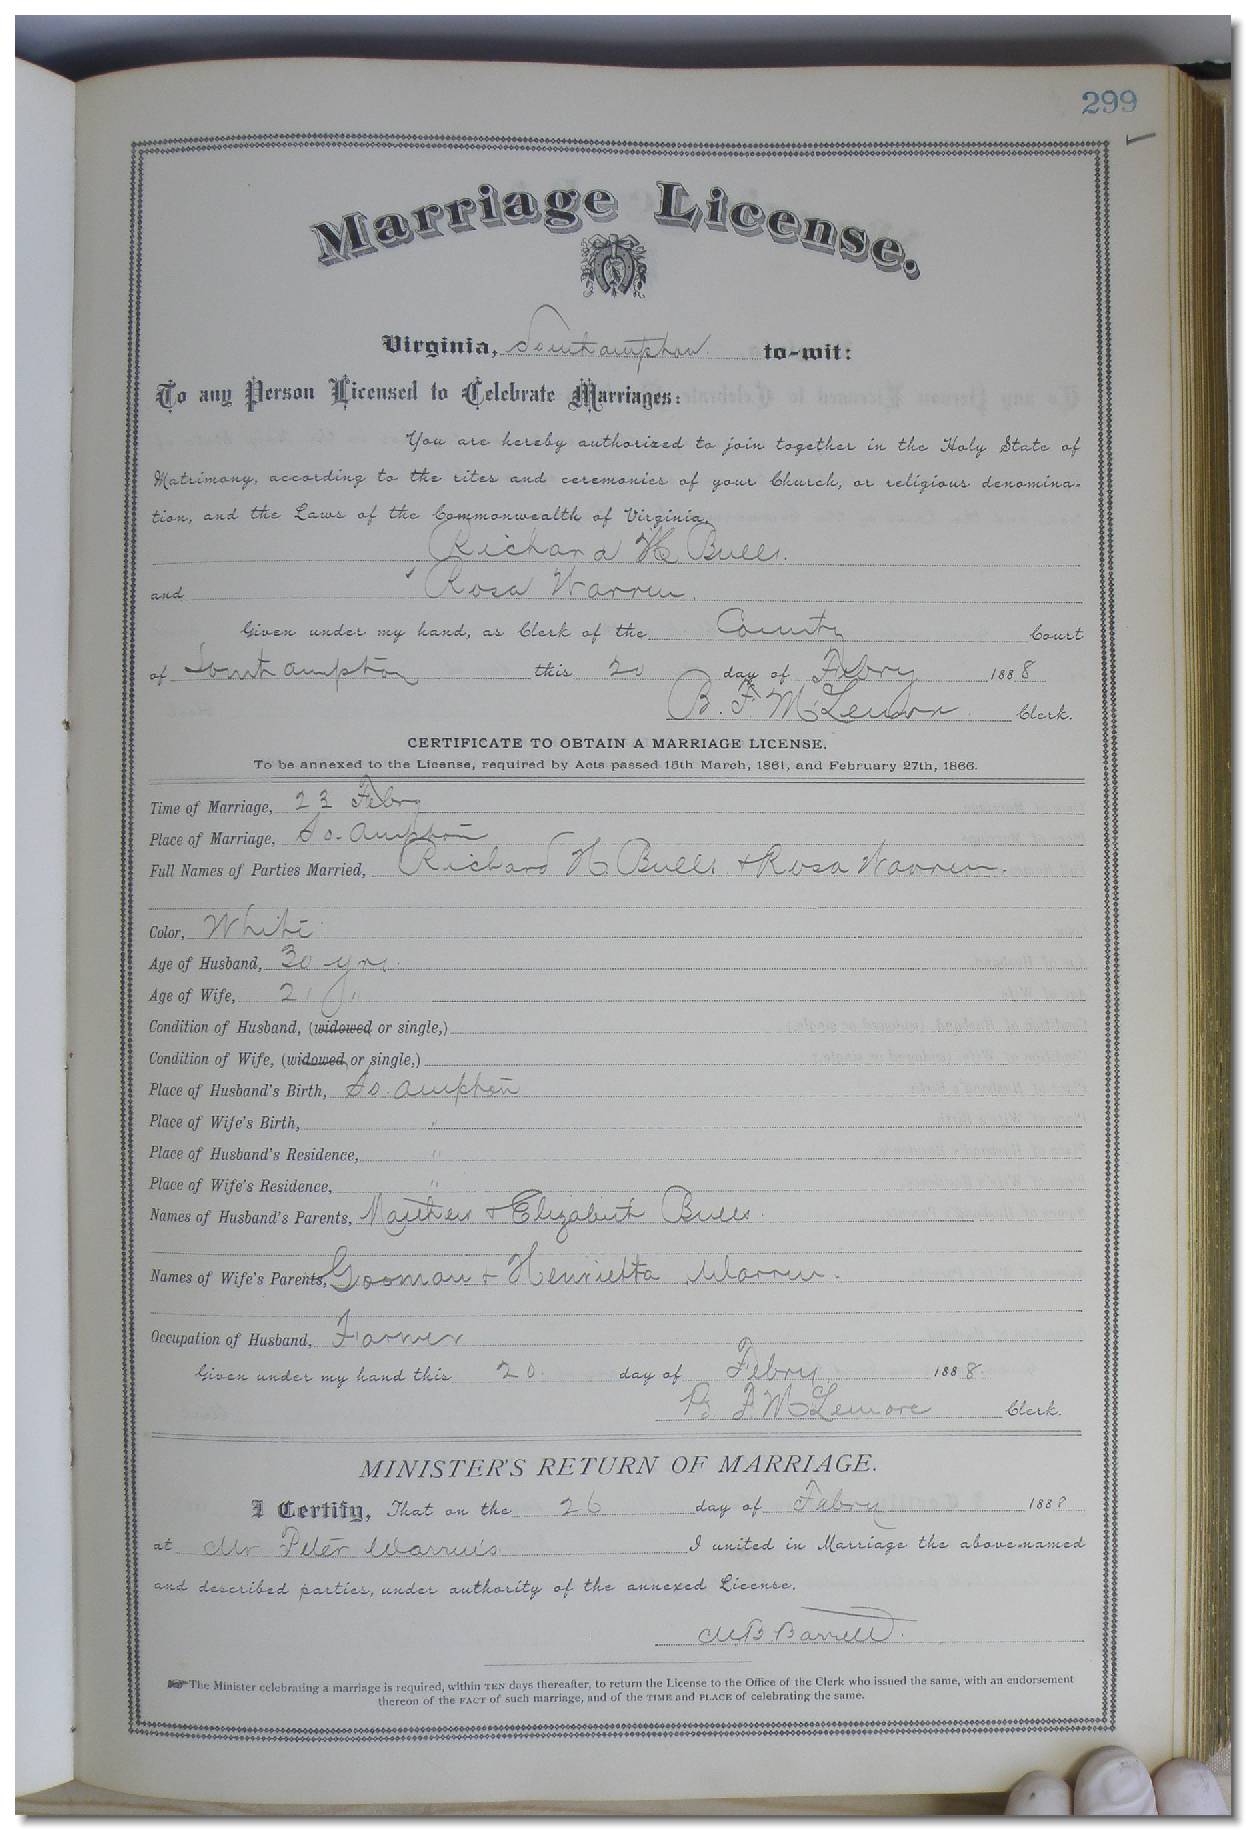 299
Marriage License.
Virginia, Southampton to-wit:
To any Person Licensed to Celebrate Marriages:
You are hereby authorized to join together in the Holy State of
Matrimony, according to the rites and ceremonies of your Church, or religious denomina-
tion, and the Laws of the Commonwealth of Virginia,
Richard H Bulls.
and Rosa Warren.
Given under my hand, as Clerk of the County Court
of Southampton this 20 day of Febry 1888
B. F. McLemore Clerk.
CERTIFICATE TO OBTAIN A MARRIAGE LICENSE.
To be annexed to the License, required by Acts passed 15th March, 1861, and February 27th, 1866.
Time of Marriage, 23 Febry
Place of Marriage, So. ampton
Full Names of Parties Married, Richard H Bulls + Rosa Warren.
Color, White
Age of Husband, 30 yrs.
Age of Wife, 21 "
Condition of Husband, (widowed or single,)
Condition of Wife, (widowed or single,)
Place of Husband's Birth, So. ampton
Place of Wife's Birth, "
Place of Husband's Residence, "
Place of Wife's Residence, "
Names of Husband's Parents, Matthew + Elizabeth Bulls.
Names of Wife's Parents, + Henrietta Warren.
Occupation of Husband, Farmer
Given under my hand this 20 day of Febry 1888.
B F McLemore Clerk.
MINISTER'S RETURN OF MARRIAGE.
I Certify, That on the 26 day of Febry 1888
at Mr Peter Warren's I united in Marriage the above-named
and described parties, under authority of the annexed License.
Barrett.
The Minister celebrating a marriage is required, within TEN days thereafter, to return the License to the Office of the Clerk who issued the same, with an endorsement
thereon of the FACT of such marriage, and of the TIME and PLACE of celebrating the same.